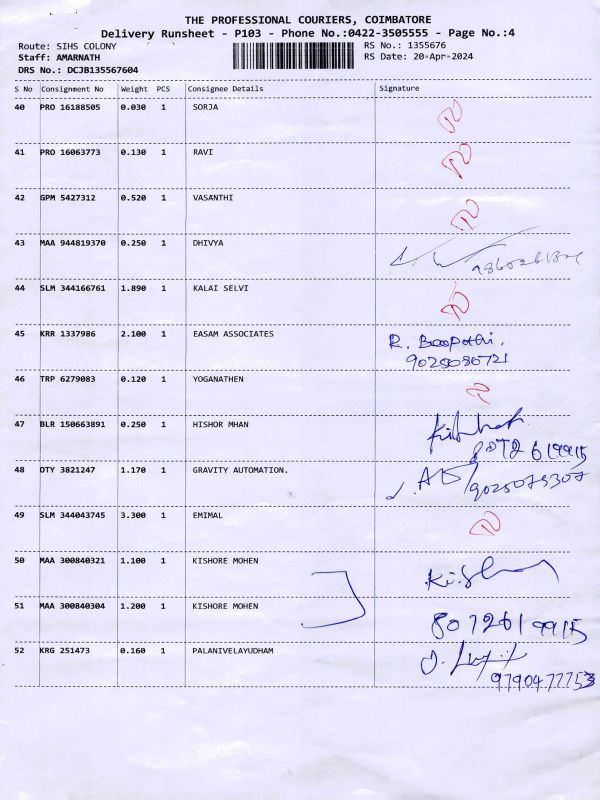 THE PROFESSIONAL COURIERS, COIMBATORE
Delivery Runsheet - P103 - Phone No.:0422-3505555 - Page No.:4
Route: SIHS COLONY RS No.: 1355676
Staff: AMARNATH RS Date: 20-Apr-2024
DRS No.: DCJB135567604
S No Consignment No Weight PCS Consignee Details Signature
40 PRO 16188505 0.030 1 SORJA
41 PRO 16063773 0.130 1 RAVI
42 GPM 5427312 0.520 1 VASANTHI
43 MAA 944819370 0.250 1 DHIVYA
44 SLM 344166761 1.890 1 KALAI SELVI
45 KRR 1337986 2.100 1 EASAM ASSOCIATES R. Boopathi.
9025080721
46 TRP 6279083 0.120 1 YOGANATHEN
47 BLR 150663891 0.250 1 HISHOR MHAN
8072619915
48 OTY 3821247 1.170 1 GRAVITY AUTOMATION.
9025075307
49 SLM 344043745 3.300 1 EMIMAL
50 MAA 300840321 1.100 1 KISHORE MOHEN
51 MAA 300840304 1.200 1 KISHORE MOHEN 8072619915
52 KRG 251473 0.160 1 PALANIVELAYUDHAM
9790477753